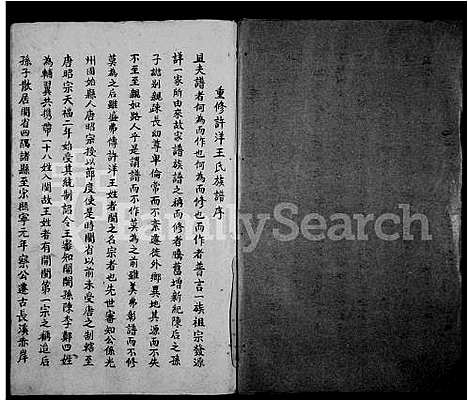 重修許洋王氏族譜序
且夫譜者何為而作也何為而修也而作者普言一族祖宗發源
詳家所由來故家譜族譜之稱而修者騰舊增新紀陳后之孫
子誂別親疎長幼尊卑倫常而不紊遷徙外鄉異地其源而不失
不至至親如路人乎是謂譜而不作莫為之前雖美弗彰譜而不修
莫為之后雖盛弗傳許洋王姓者閩之名宗者也先世審知公係光
州固始縣人唐昭宗授以節度使是時閩省以前未受唐之制轄至
唐昭宗天福二年始受其統制詔令王審知開閩孫陳李鄭四姓
為輔翼共携帶二十八姓入閩故王姓者有開閩第一宗之稱迨后
孫子散居閩省四隅諸縣至宋熙寧元年察公遷古長溪赤岸
FamilySearch